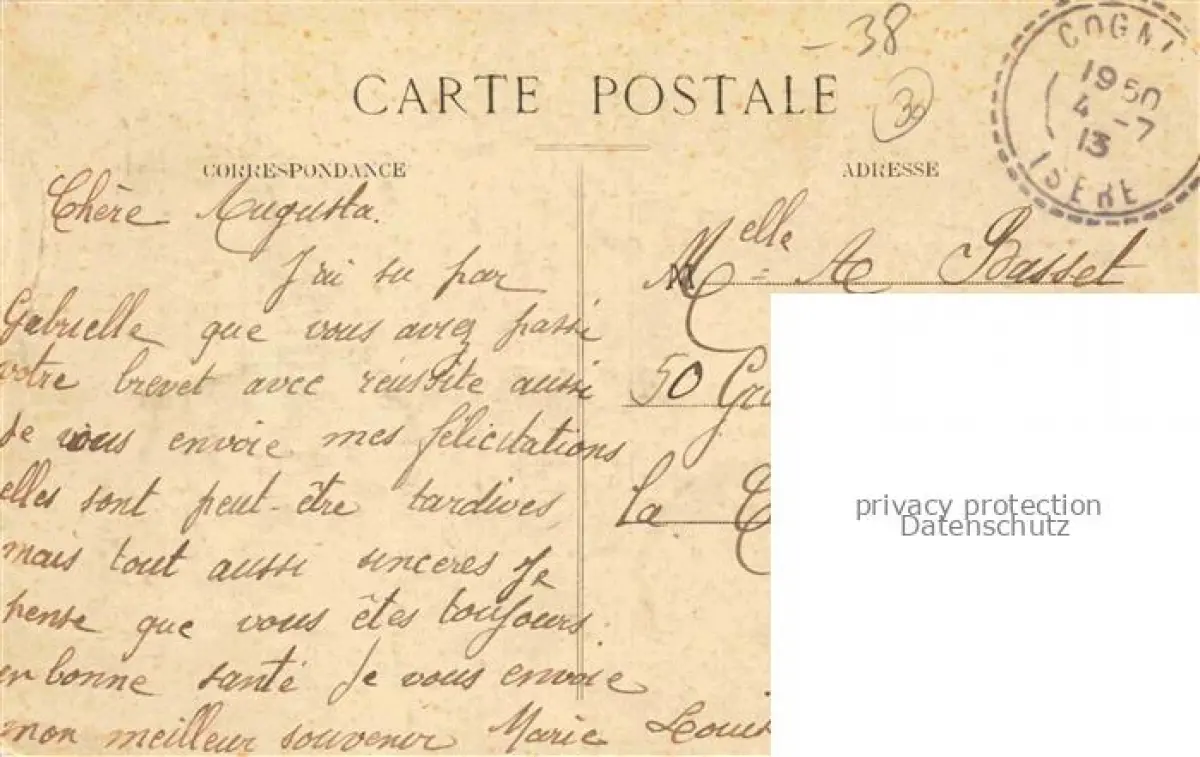 - 38
CARTE POSTALE
30
COGN
1950
4 -7
13
ISERE
CORRESPONDANCE
Chère Augusta.
J'ai su par
Gabrielle que vous aviez passé
votre brevet avec réussite aussi
Je vous envoie mes félicitations
elles sont peut-être tardives,
mais tout aussi sincères Je
pense que vous êtes toujours
en bonne santé Je vous envoie
mon meilleur souvenir Marie Louis
ADRESSE
Melle A Basset
50 Gra
La
privacy protection
Datenschutz